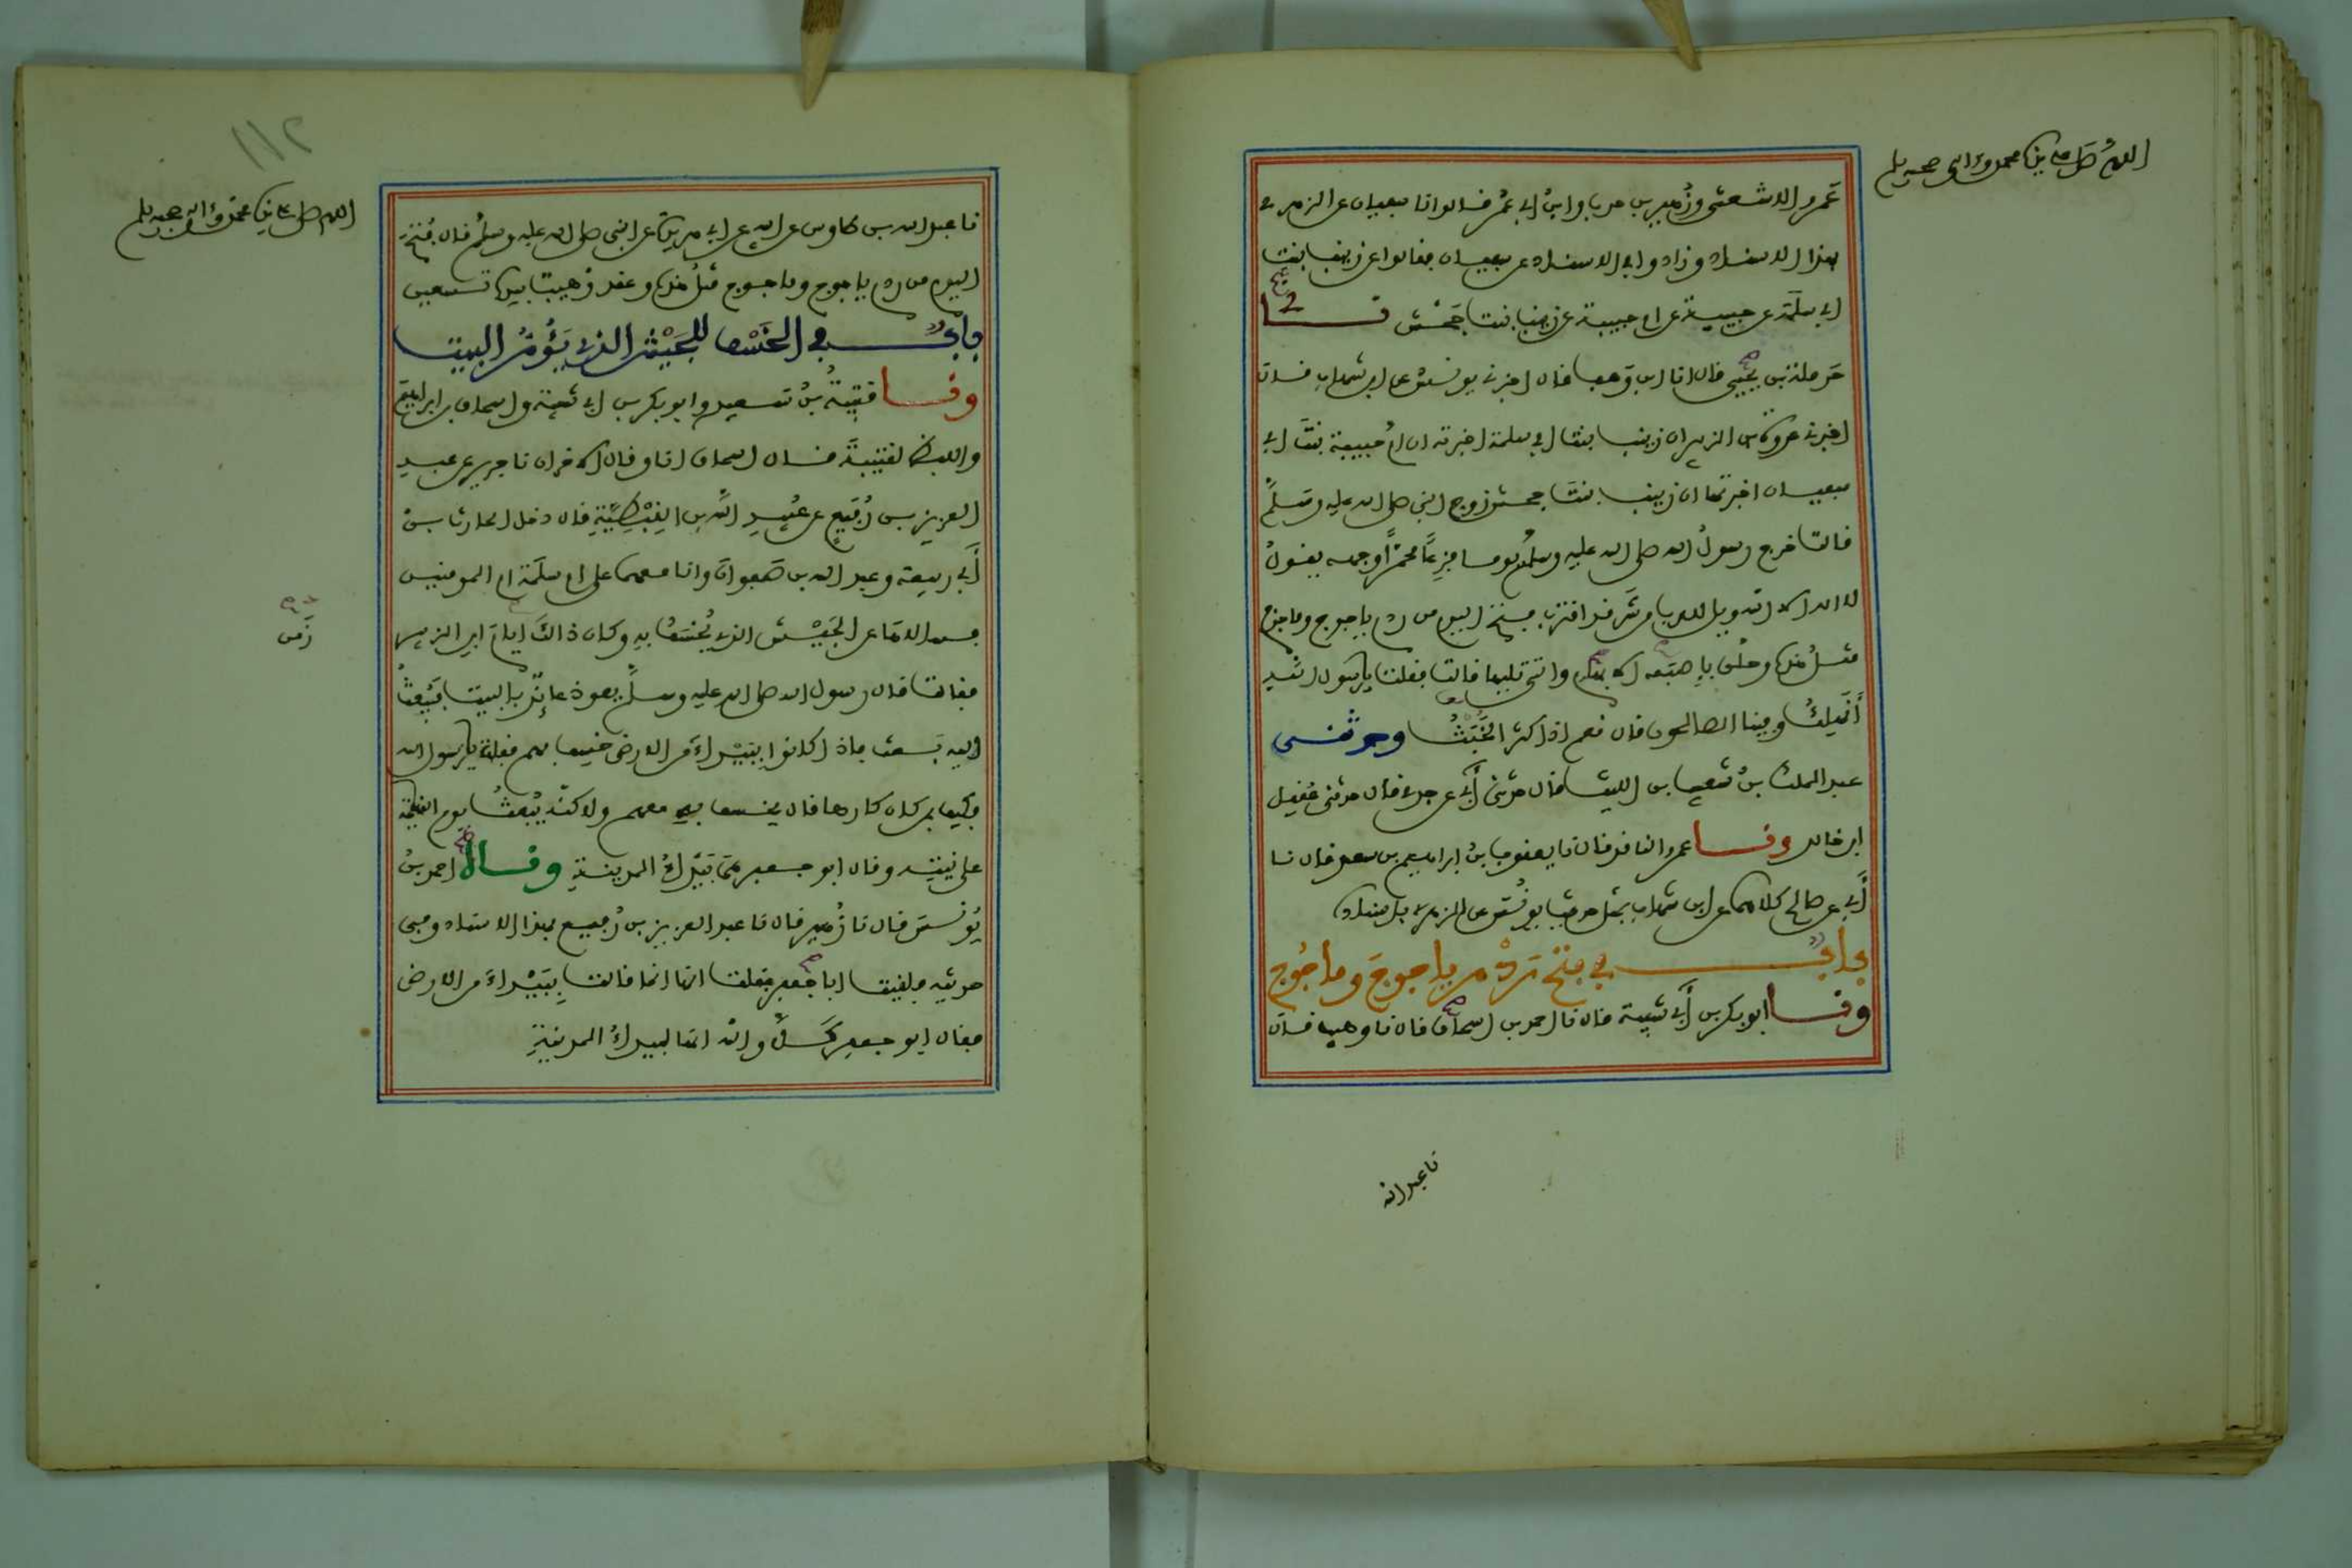 اللهم صل على نبينا محمد وءاله وصحبه وسلم
عَمرو الاشعثى وزُهير بن حرب وابنُ ابى عُمر قالوا نا سفيان عن الزهرى
بهذا الاسناد وزادوا فى الاسناد عن سفيان فقالوا عن زينب بنت
ابى سلَمَة عن حبيبة عن ام حبيبة عن زينب بنت جَحْش نا
حَرملة بن يحيى قال انا ابن وَهب قال اخبرنى يونسُ عن ابن شهاب قال
اخبرنى عروة بن الزبير ان زينب بنت ابى سلمة اخبرته ان امَّ حبيبة بنتَ ابى
سفيان اخبرتها ان زينب بنتَ جحش زوج النبى صلى الله عليه وسلم
قالت خرج رسولُ الله صلى الله عليه وسلم يوما فزِعًا محمرًّا وجهه يقولُ
لا اله الا الله ويل للعرب من شَر قد اقترب فتح اليوم من ردم ياجوج وماجوج
مثلُ هذه وحلّق باِصبَعه الابهام والتى تليها قالت فقلت يارسول الله
أَنَهلِكُ وفينا الصالحون قال نعم اذا كثر الخَبَثُ وحدثنى
عبد الملك بنُ شعيب بن الليث قال حدثنى أَبى عن جدى قال حدثنى عُقيل
ابن خالد ونا عمرو الناقد قال نا يعقوب بنُ ابراهيم بن سعد قال نا
أَبى عن صالح كلاهما عن ابن شهاب بمثل حديث يونُسَ عن الزهرى باسناده
بابٌ فى فتح رَدْم ياجوجَ وماجُوج
ونا ابو بكر بن أَبى شيبة قال نا احمد بن اسحاق قال نا وهيب قال
نا عبد الله
١١٢
اللهم صل على نبينا محمد وءاله وصحبه وسلم
نا عبد الله بن طاوس عن ابيه عن ابى هريرة عن النبى صلى الله عليه وسلم قال فُتحَ
اليوم من ردم ياجوج وماجوج مثلُ هذه وعقد وُهيب بيده تسعين
بابٌ فى الخَسْف بالجَيْش الذى يَؤُمُّ البيت
ونا قتيبةُ بنُ سعيد وابو بكر بن ابى شيبة واسحاق بن ابراهيم
واللفظ لقتيبةَ قال اسحاق انا وقال الاخران نا جرير عن عبد
العزيز بن رُفَيعٍ عن عُبيدِ اللهِ بنِ القِبْطِيَّةِ قال دخل الحارث بنُ
أَبى ربيعة وعبد الله بن صَفوانَ وانا معهما على ام سلَمَة ام المومنين
فسالاها عن الجَيْش الذى يُخسَفُ به وكان ذالك ايامَ ابن الزبير
زَمن
فقالت قال رسول الله صلى الله عليه وسلم يعوذ عائذ بالبيت فيُبعثُ
اليه بَعث فاذا كانوا ببَيْداءَ من الارض خسف بهم فقلت يارسول الله
فكيف بمن كان كارها قال يخسف به معهم ولاكنّه يُبعثُ يوم القيمة
على نيته وقال ابو جعفر هى بَيْداءُ المدينة وناه احمد بنُ
يُونسَ قال نا زُهير قال نا عبد العزيز بن رُفيع بهذا الاسناد وفى
حديثه فلقيت ابا جعفر فقلت انها انما قالت بِبَيْداءَ من الارض
فقال ابو جعفر كَلاَّ والله انها لبيداءُ المدينةِ